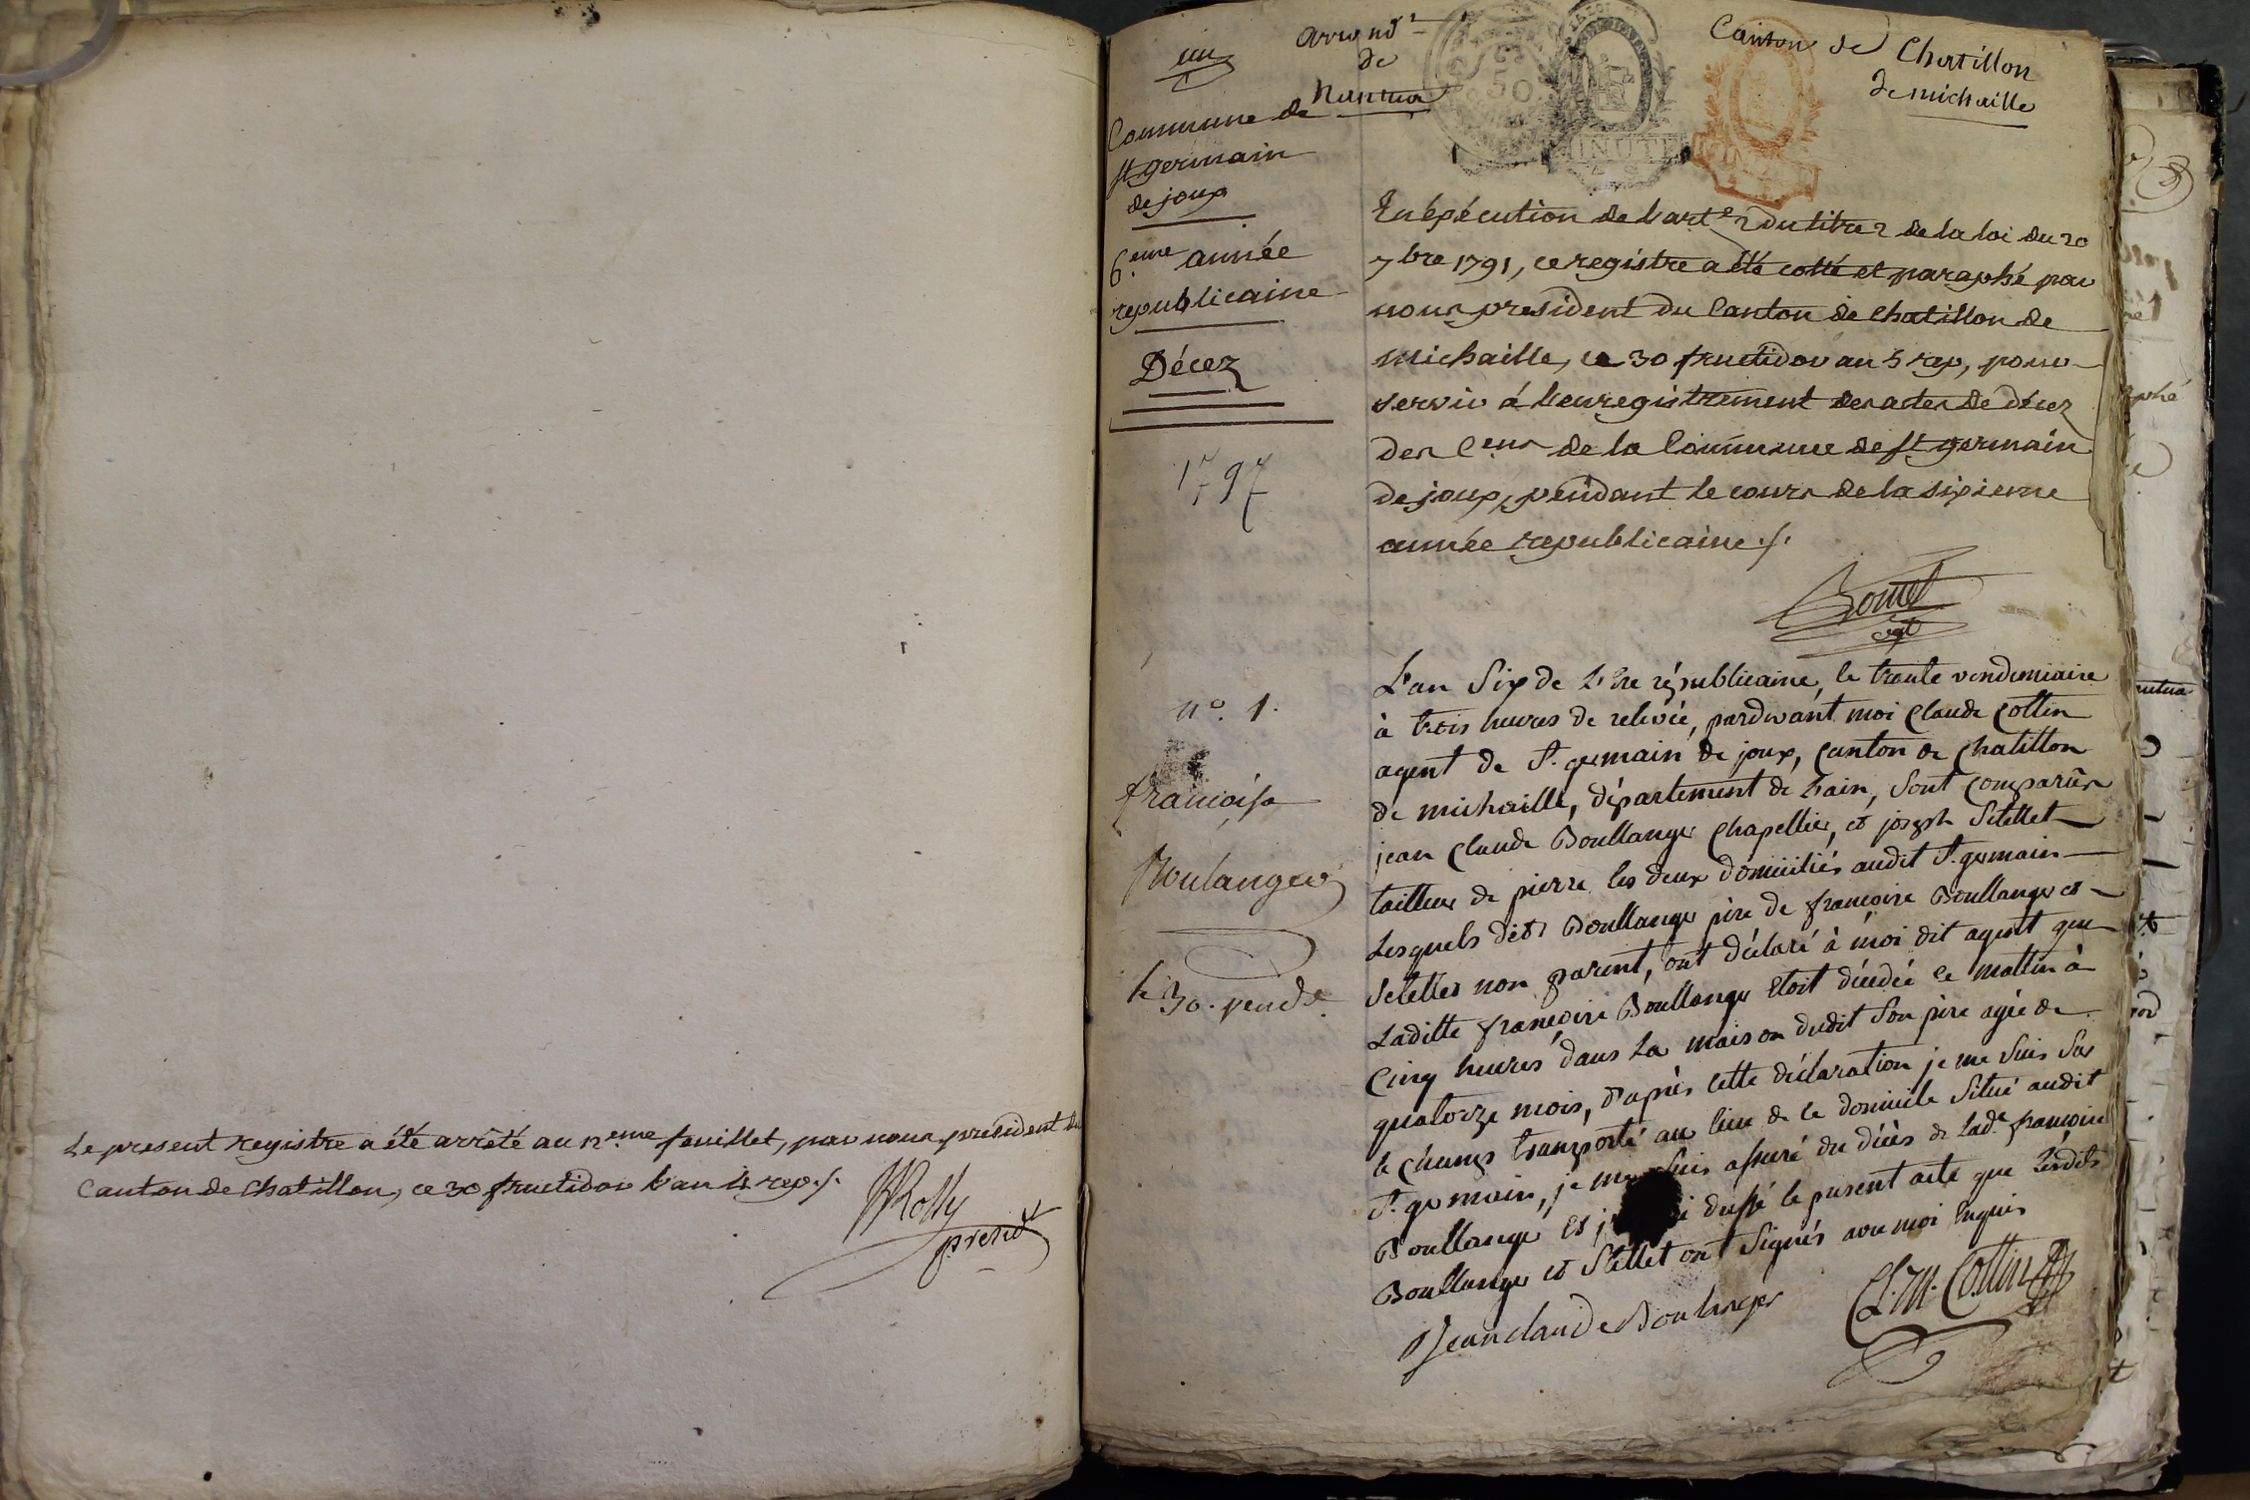 Le present registre a été arrêté au 12.eme feuillet, par nous president du
Canton de Chatillon, ce 30 fructidor l'an 4 rep./.
presidt
un
arrond.t
de
Nantua
Canton de Chatillon
de michaille
Commune de
st germain
de joux
6.eme année
republicaine
Décez
1797
MINUTE
En éxécution de l'art.e 2 du titre 2 de la loi du 20
7bre 1791, ce registre a été cotté et paraphé par
nous president du Canton de Chatillon de
Michaille, ce 30 fructidor an 5 rep, pour
servir á l'enregistrement des actes de décez
des C.ens de la Commune de st germain
de joux, pendant le cours de la sixieme
année republicaine./.
n°. 1.
francoise
Boulanger
le 30. vend.e
L'an Six de L'Ere républicaine, le trente vendemiaire
à trois heures de relevée, pardevant moi Claude Collin
agent de St. germain de joux, Canton de Chatillon
de michaille, département de l'ain, sont Comparûs
jean Claude Boullanger Chapellier, et joseph Stillet
tailleur de pierre les deux domiciliés audit St. germain
Lesquels dits Boullanger père de francoise Boullanger et
non parent, ont déclaré à moi dit agent que
Laditte francoise Boullanger etoit décédée ce mattin à
Cinq heures dans La maison dudit Son père agée de
quatorze mois, d'après cette déclaration je me suis sur
le Champs transporté au lieu de ce domicile Situé audit
St. germain, je me suis assuré du décès de lad.e francoise
Boullanger et j dressé le présent acte que Lesdits
Boullanger et Stillet ont Signés avec moi
Jean claude Boulanger
Cl. M. Collin